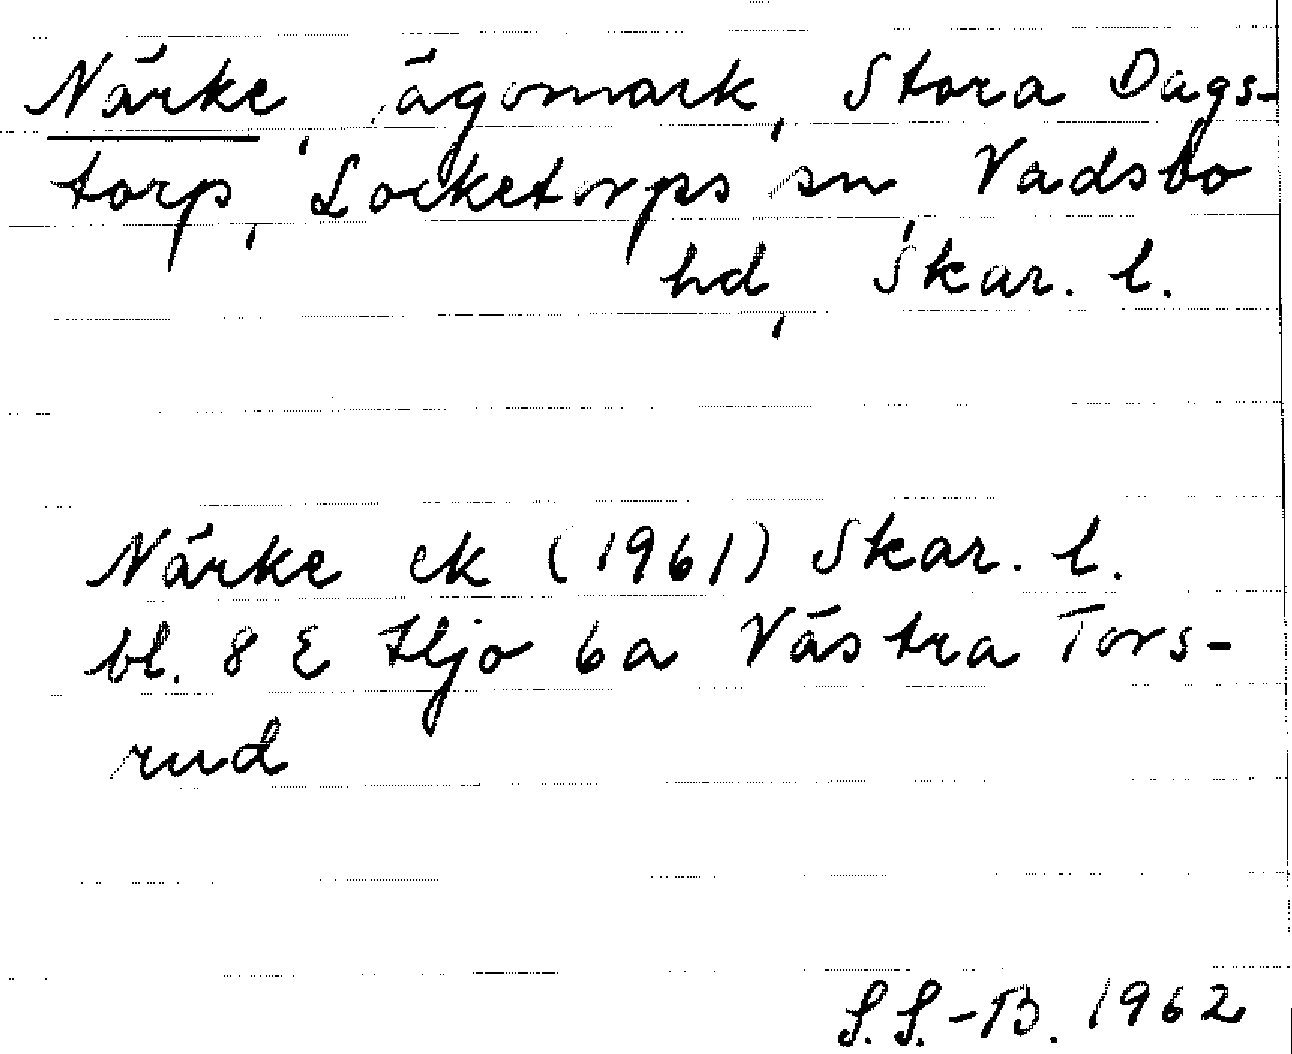 Närke, ägomark, Stora Dags-
torp, Locketorps sn, Vadsbo
hd, Skar. l.
Närke ek (1961) Skar. l.
bl. 8 E Hjo 6a Västra Tors-
rud
S.S.-B. 1962